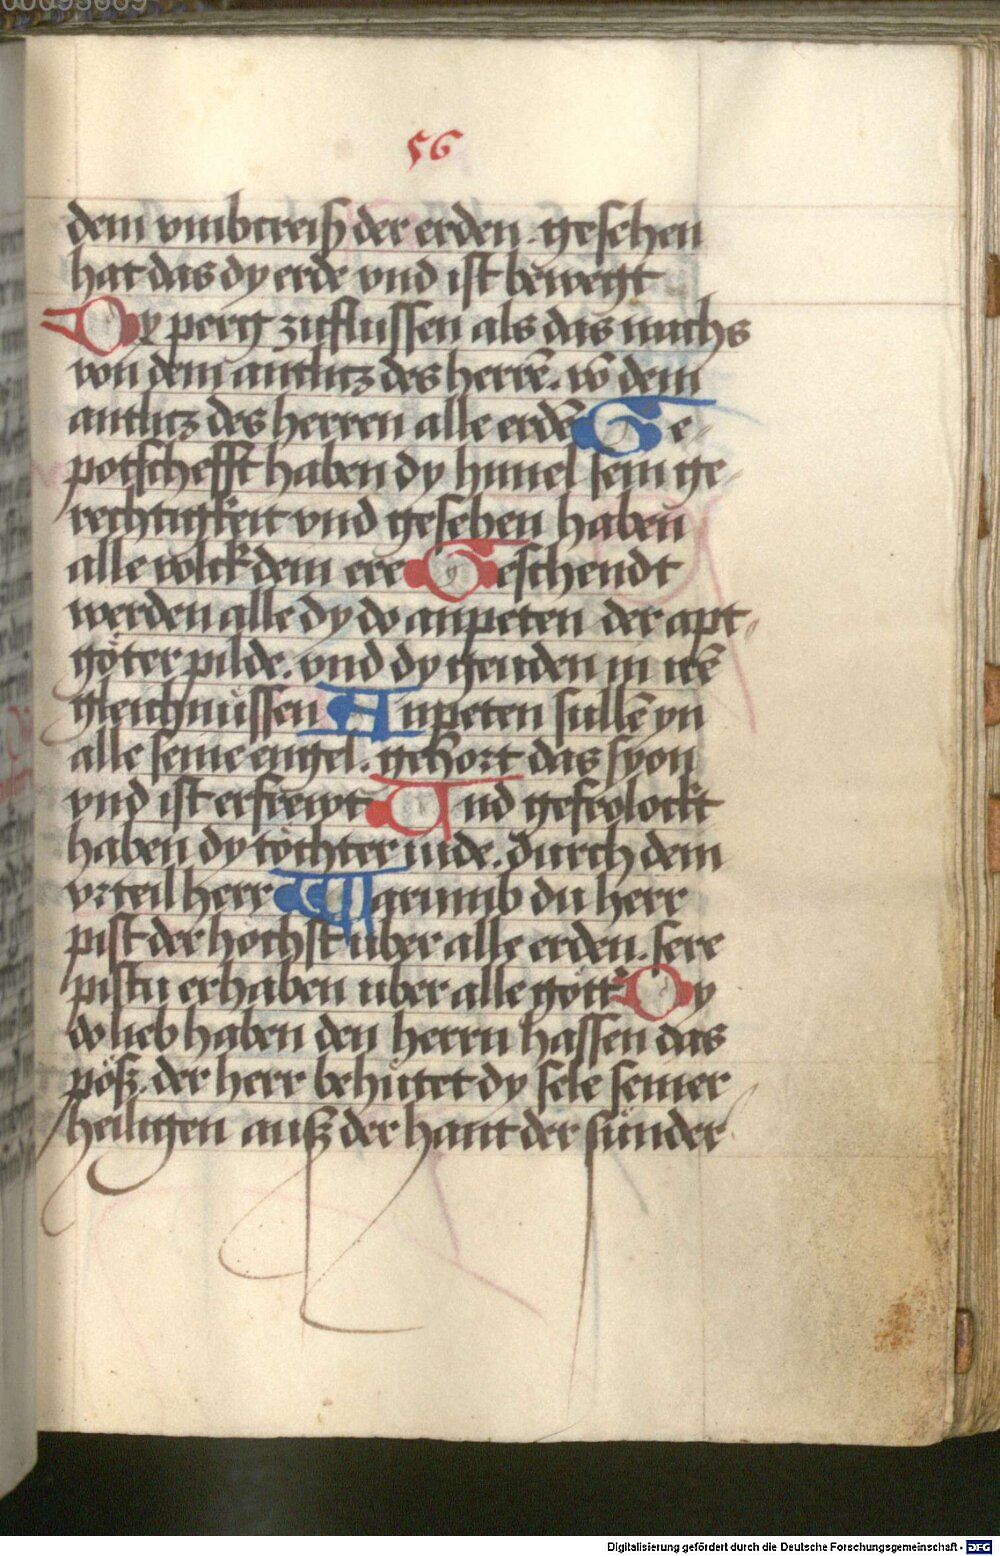 56
dem vmbcreiß der erden. gesehen
hat das dy erde vnd ist bewegt
Dy perg zuflussen als das wachs
von dem antlitz des herrē. vō dem
antlitz des herren alle erdē Ge-
potschefft haben dy himel sein ge-
rechtigkeit vnd gesehen haben
alle volck dem ere Geschendt
werden alle dy do anpeten der apt-
götter pilde. vnd dy genden in irē
gleichnüssen Anpeten sullē yn
alle seine engel. gehort das syon
vnd ist erfrewt Und gefrolockt
haben dy töchter iude. durch dem
vrteil herr Warumb du herr
pist der hochst uber alle erden. sere
pistu erhaben uber alle gött Dy
do lieb haben den herrn hassen das
pöß. der herr behütet dy sele seiner
heiligen auß der hant der sünder
Digitalisierung gefördert durch die Deutsche Forschungsgemeinschaft - DFG